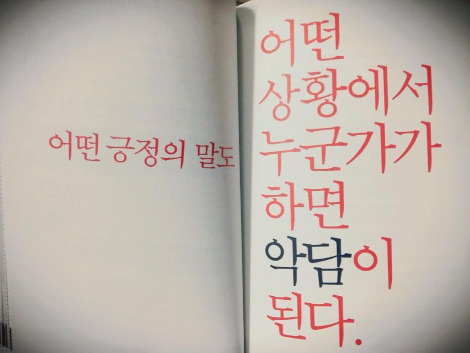 어떤 긍정의 말도
어떤
상황에서
누군가가
하면
악담이
된다.